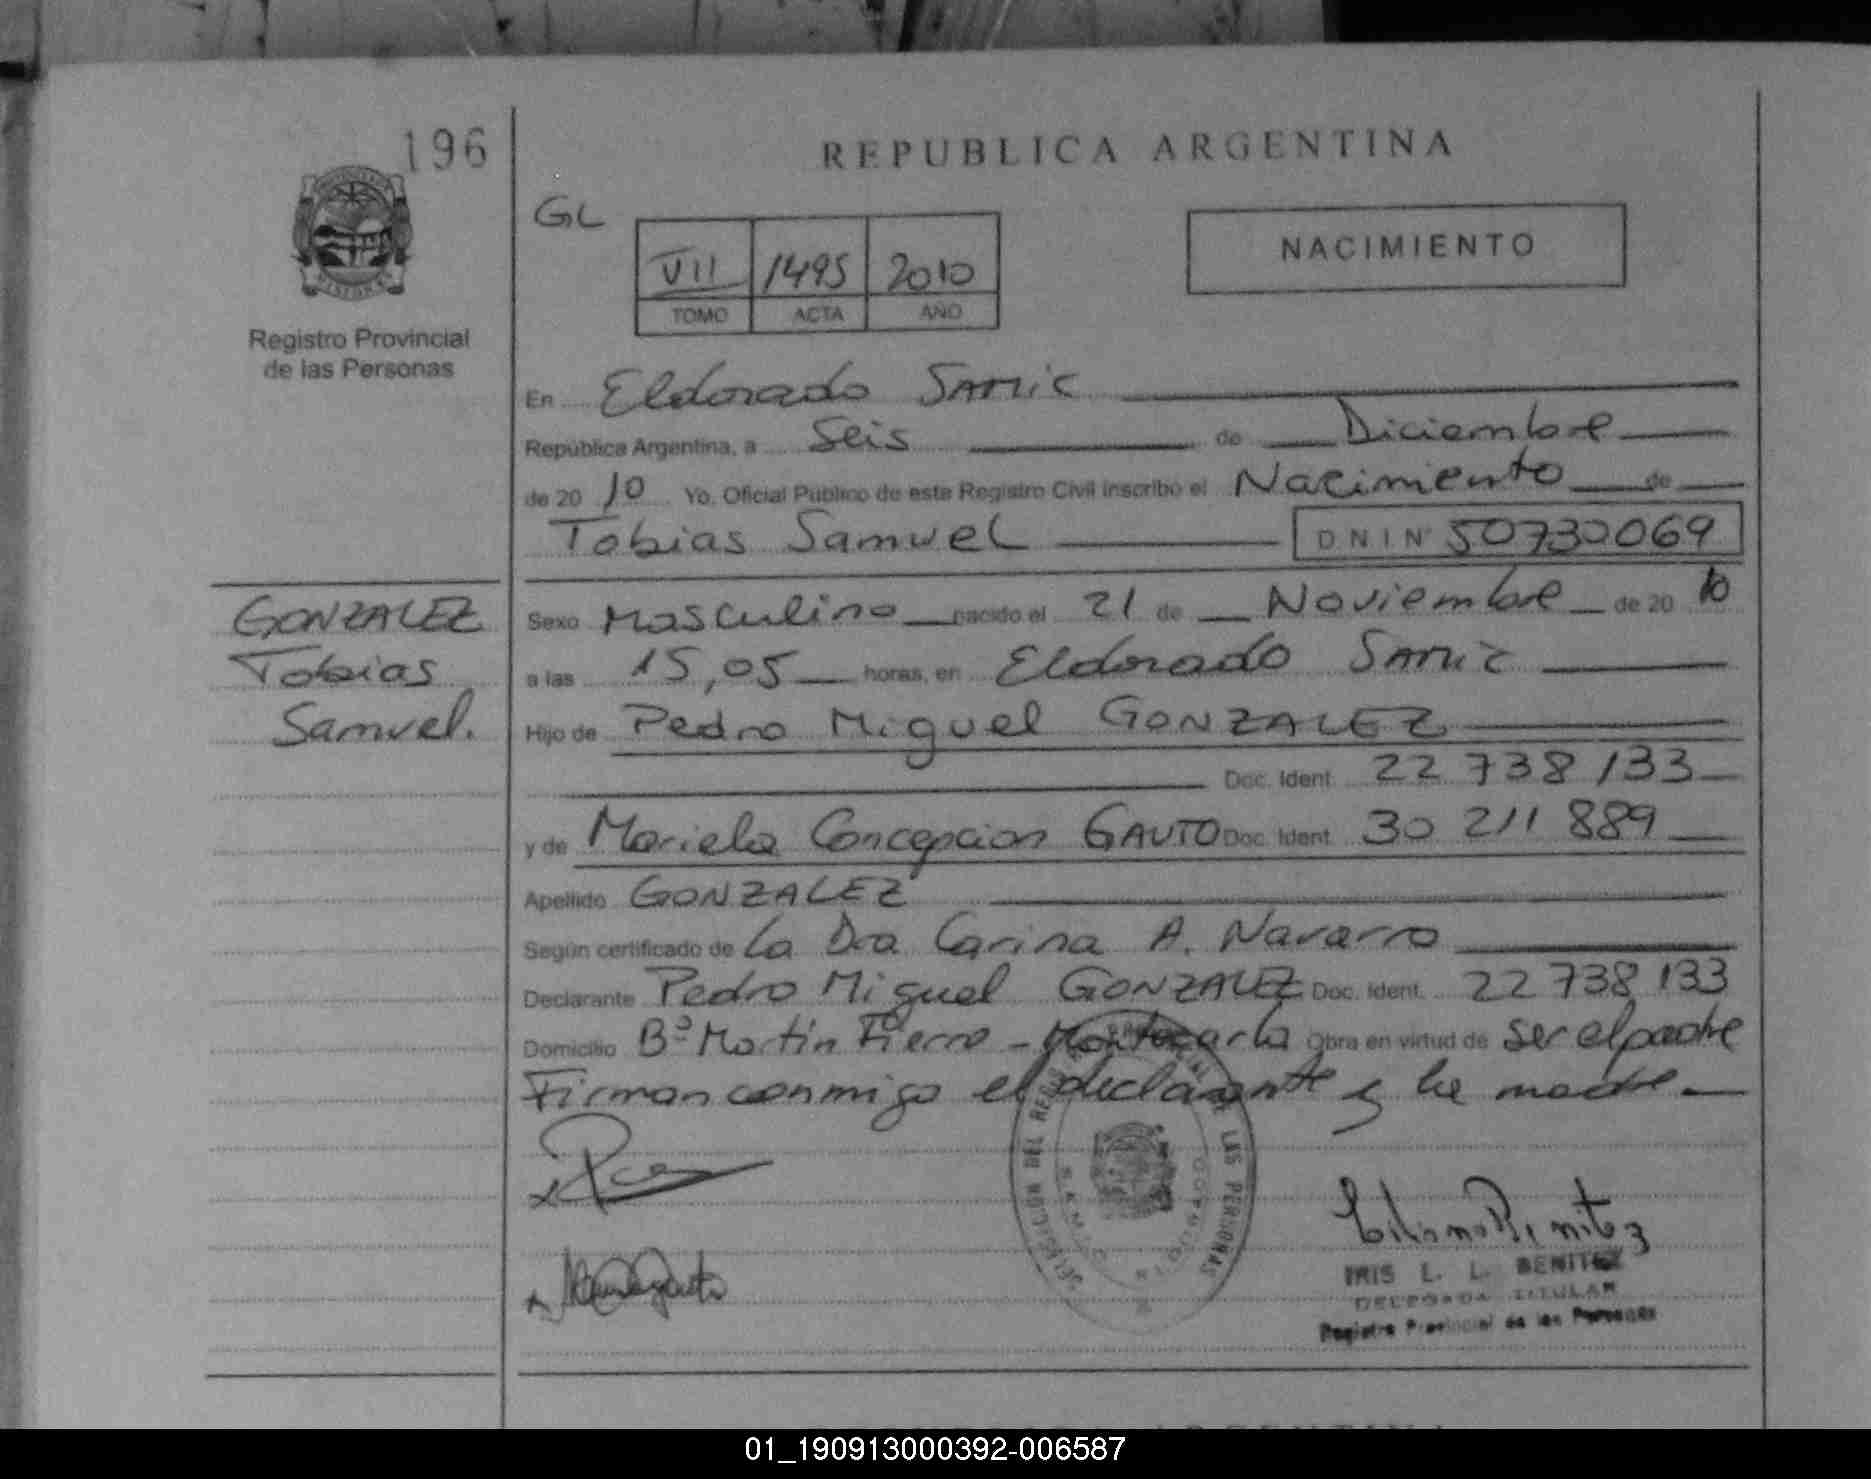 196
REPUBLICA ARGENTINA
GL
NACIMIENTO
VII 1495 2010
TOMO ACTA AÑO
Registro Provincial
de las Personas
En Eldorado SAMIC
República Argentina, a Seis de Diciembre
de 20 10 Yo, Oficial Público de este Registro Civil inscribo el Nacimiento de
Tobias Samuel DNI Nº 50730069
GONZALEZ
Tobias
Samuel.
Sexo Masculino nacido el 21 de Noviembre de 20 10
a las 15,05 horas, en Eldorado SAMIC
Hijo de Pedro Miguel GONZALEZ
Doc. Ident. 22 738 133
y de Mariela Concepcion GAUTO Doc. Ident. 30 211 889
Apellido GONZALEZ
Según certificado de La Dra Carina A. Navarro
Declarante Pedro Miguel GONZALEZ Doc. Ident. 22 738 133
Domicilio Bº Martín Fierro - Montecarlo Obra en virtud de ser el padre
Firman conmigo el declarante y la madre
DEL LAS PERSONAS
IRIS L. L. BENITEZ
DELEGADA TITULAR
Registro Provincial de las Personas
01_190913000392-006587